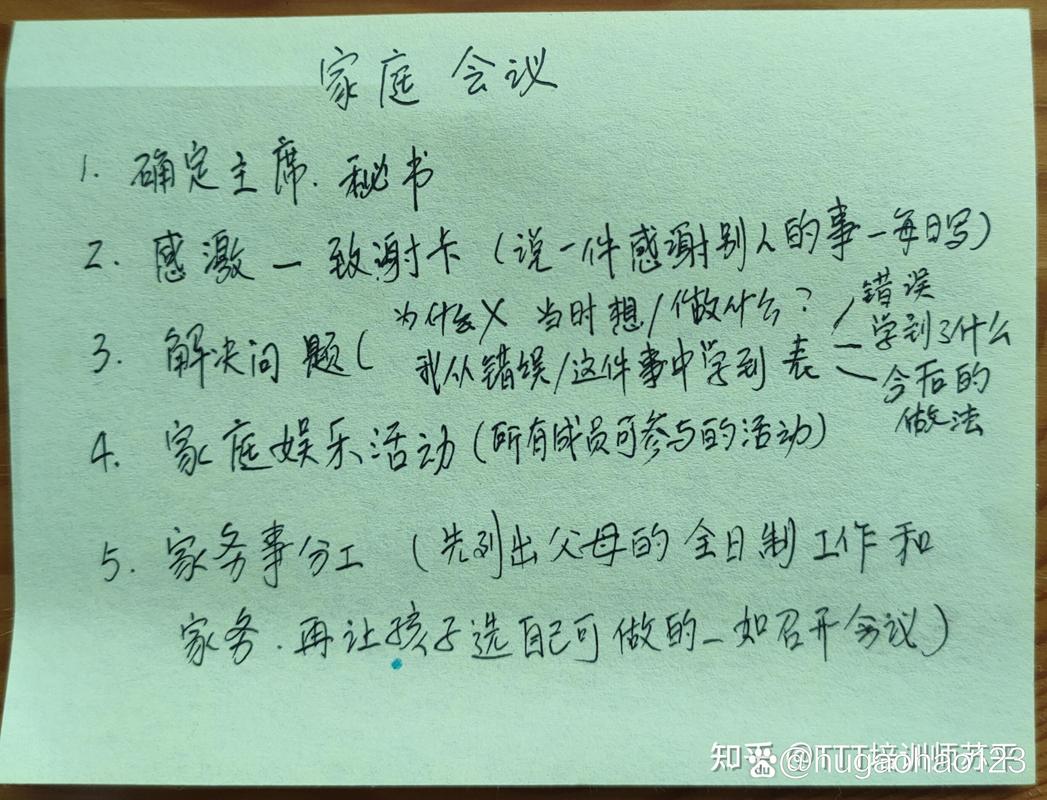 家庭 会议
1. 确定主席. 秘书
2. 感激 — 致谢卡 (说一件感谢别人的事—每日写)
3. 解决问题(
为什么X 当时想/做什么?
我从错误/这件事中学到 表
错误
学到了什么
今后的
做法
4. 家庭娱乐活动(所有成员可参与的活动)
5. 家务事分工 (先列出父母的全日制工作和
家务.再让孩子选自己可做的—如召开会议)
知乎 @TTT培训师苏平
du @hugaohao123